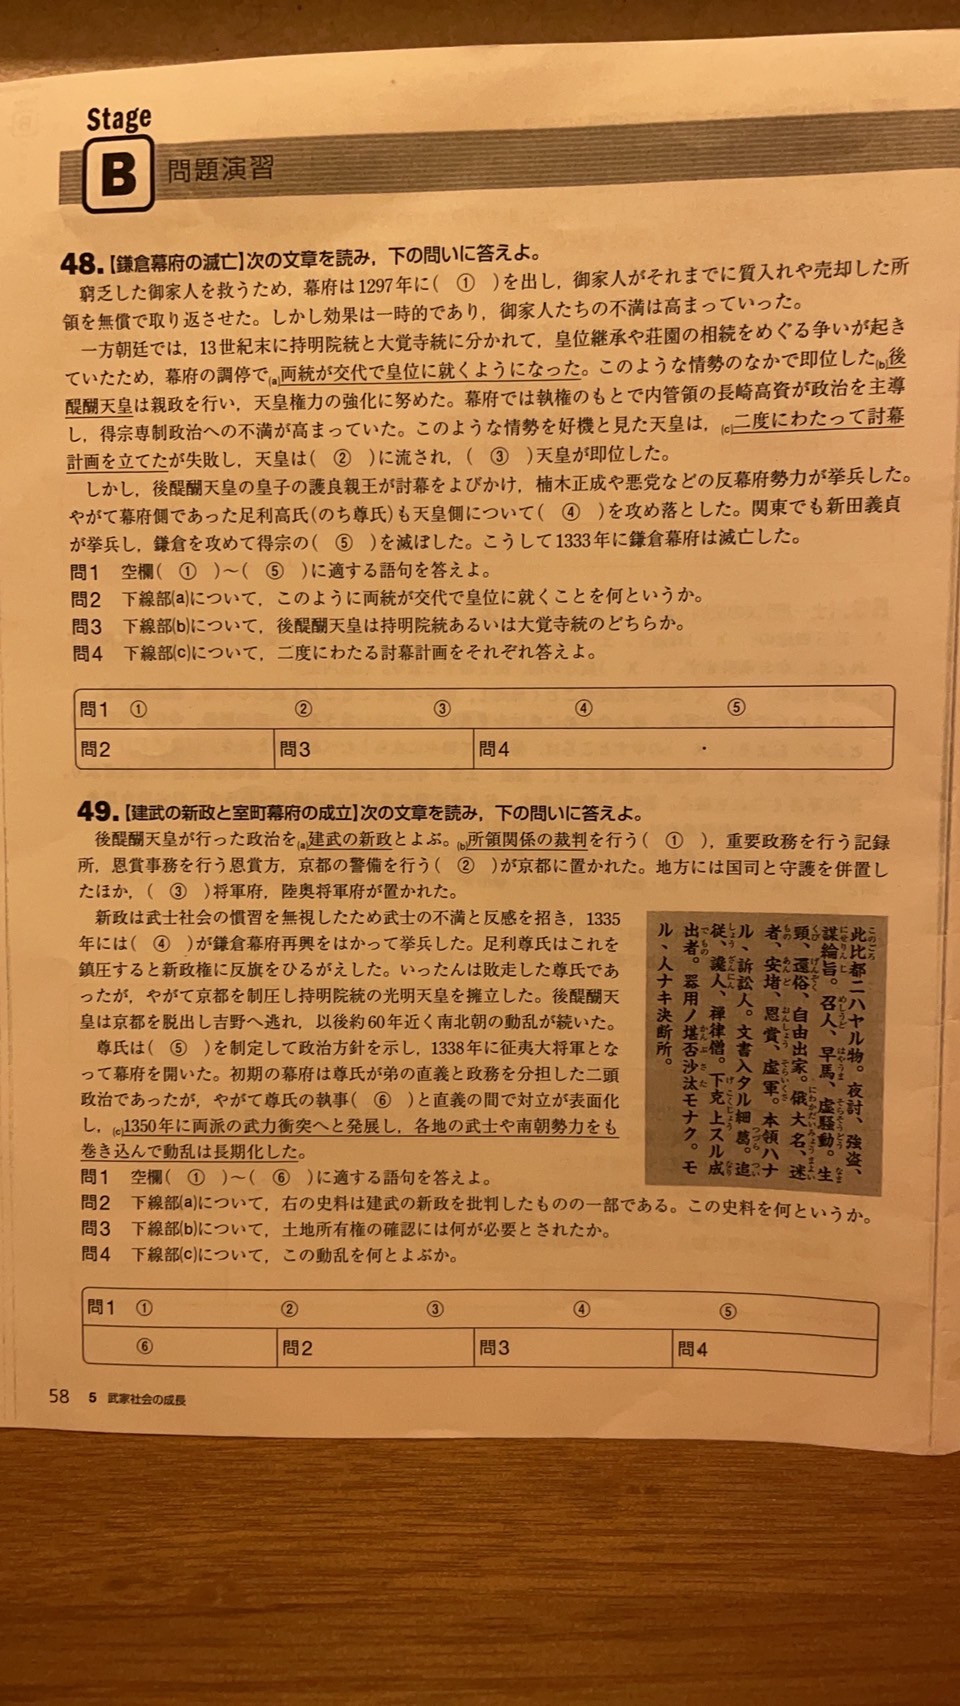 Stage
B 問題演習
48.【鎌倉幕府の滅亡】次の文章を読み，下の問いに答えよ。
窮乏した御家人を救うため，幕府は1297年に( ① )を出し，御家人がそれまでに質入れや売却した所
領を無償で取り返させた。しかし効果は一時的であり，御家人たちの不満は高まっていった。
一方朝廷では，13世紀末に持明院統と大覚寺統に分かれて，皇位継承や荘園の相続をめぐる争いが起き
ていたため，幕府の調停で(a)両統が交代で皇位に就くようになった。このような情勢のなかで即位した(b)後
醍醐天皇は親政を行い，天皇権力の強化に努めた。幕府では執権のもとで内管領の長崎高資が政治を主導
し，得宗専制政治への不満が高まっていた。このような情勢を好機と見た天皇は，(c)二度にわたって討幕
計画を立てたが失敗し，天皇は( ② )に流され，( ③ )天皇が即位した。
しかし，後醍醐天皇の皇子の護良親王が討幕をよびかけ，楠木正成や悪党などの反幕府勢力が挙兵した。
やがて幕府側であった足利高氏(のち尊氏)も天皇側について( ④ )を攻め落とした。関東でも新田義貞
が挙兵し，鎌倉を攻めて得宗の( ⑤ )を滅ぼした。こうして1333年に鎌倉幕府は滅亡した。
問1 空欄( ① )～( ⑤ )に適する語句を答えよ。
問2 下線部(a)について，このように両統が交代で皇位に就くことを何というか。
問3 下線部(b)について，後醍醐天皇は持明院統あるいは大覚寺統のどちらか。
問4 下線部(c)について，二度にわたる討幕計画をそれぞれ答えよ。
問1 ① ② ③ ④ ⑤
問2 問3 問4 ・
49.【建武の新政と室町幕府の成立】次の文章を読み，下の問いに答えよ。
後醍醐天皇が行った政治を(a)建武の新政とよぶ。(b)所領関係の裁判を行う( ① )，重要政務を行う記録
所，恩賞事務を行う恩賞方，京都の警備を行う( ② )が京都に置かれた。地方には国司と守護を併置し
たほか，( ③ )将軍府，陸奥将軍府が置かれた。
新政は武士社会の慣習を無視したため武士の不満と反感を招き，1335
年には( ④ )が鎌倉幕府再興をはかって挙兵した。足利尊氏はこれを
鎮圧すると新政権に反旗をひるがえした。いったんは敗走した尊氏であ
ったが，やがて京都を制圧し持明院統の光明天皇を擁立した。後醍醐天
皇は京都を脱出し吉野へ逃れ，以後約60年近く南北朝の動乱が続いた。
尊氏は( ⑤ )を制定して政治方針を示し，1338年に征夷大将軍となっ
て幕府を開いた。初期の幕府は尊氏が弟の直義と政務を分担した二頭
政治であったが，やがて尊氏の執事( ⑥ )と直義の間で対立が表面化
し，(c)1350年に両派の武力衝突へと発展し，各地の武士や南朝勢力をも
巻き込んで動乱は長期化した。
此比都ニハヤル物。夜討、強盗、
謀綸旨。召人、早馬、虚騒動。生
頸、還俗、自由出家。俄大名、迷
者、安堵、恩賞、虚軍。本領ハナ
ル、訴訟人。文書入タル細葛。追
従、讒人、禅律僧。下克上スル成
出者。器用ノ堪否沙汰モナク。モ
ル、人ナキ決断所。
問1 空欄( ① )～( ⑥ )に適する語句を答えよ。
問2 下線部(a)について，右の史料は建武の新政を批判したものの一部である。この史料を何というか。
問3 下線部(b)について，土地所有権の確認には何が必要とされたか。
問4 下線部(c)について，この動乱を何とよぶか。
問1 ① ② ③ ④ ⑤
⑥ 問2 問3 問4
58 5 武家社会の成長